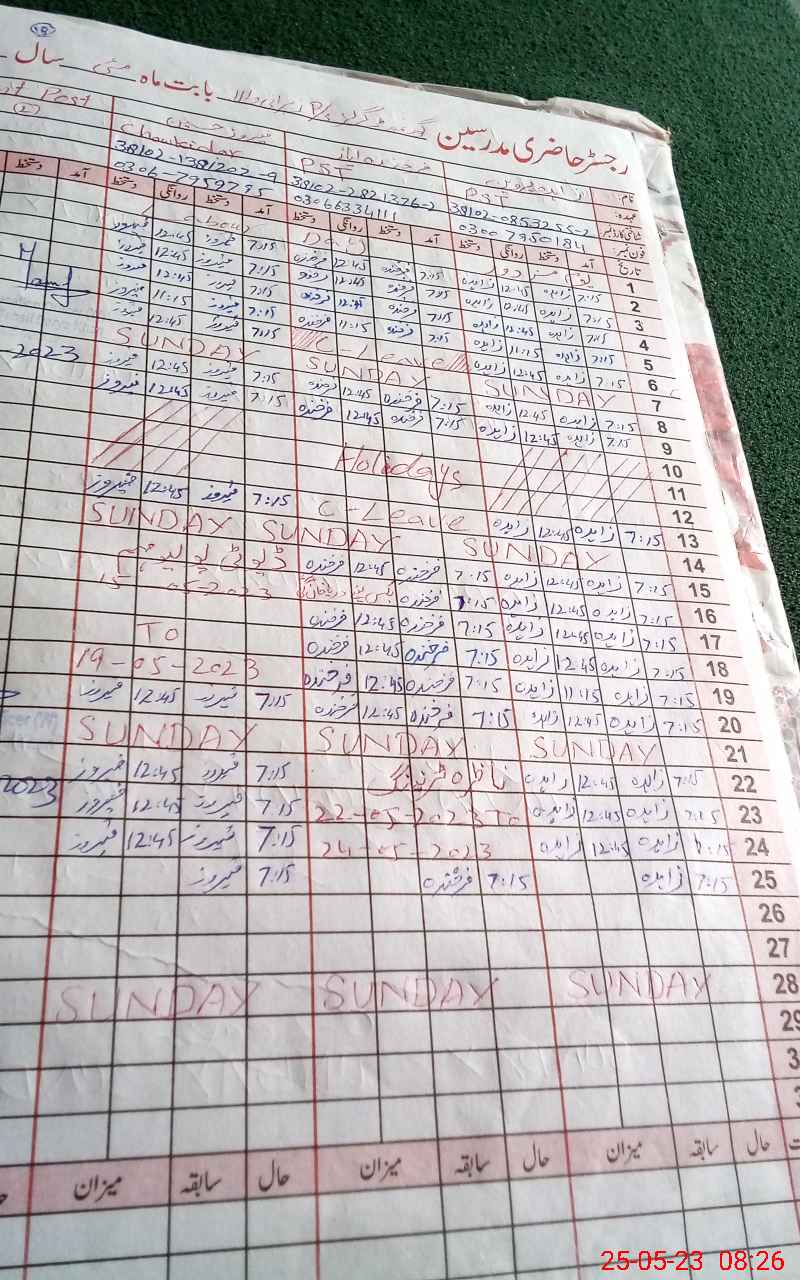 رجسٹر حاضری مدرسین
بابت ماہ مئی سال
نام:
عہدہ: PST PST Chowkidar Post
شناختی کارڈ نمبر 38102-0853255-2 38102-2821376-2 38102-1381202-9
فون نمبر 0300 7950184 03066334111 0306-7959795
تاریخ آمد دستخط روانگی دستخط آمد دستخط روانگی دستخط آمد دستخط روانگی دستخط آمد دستخط
1 یوم مزدور Labour Day
2 7:15 زاہدہ 12:45 زاہدہ 7:15 فرخندہ 12:45 فرخندہ 7:15 فیروز 12:45 فیروز
3 7:15 زاہدہ 12:45 زاہدہ 7:15 فرخندہ 12:45 فرخندہ 7:15 فیروز 12:45 فیروز
4 7:15 زاہدہ 12:45 زاہدہ 7:15 فرخندہ 12:45 فرخندہ 7:15 فیروز 12:45 فیروز
5 7:15 زاہدہ 11:15 زاہدہ 7:15 فرخندہ 11:15 فرخندہ 7:15 فیروز 11:15 فیروز
6 7:15 زاہدہ 12:45 زاہدہ C-Leave 7:15 فیروز 12:45 فیروز
7 SUNDAY SUNDAY SUNDAY
8 7:15 زاہدہ 12:45 زاہدہ 7:15 فرخندہ 12:45 فرخندہ 7:15 فیروز 12:45 فیروز 2023
9 7:15 زاہدہ 12:45 زاہدہ 7:15 فرخندہ 12:45 فرخندہ 7:15 فیروز 12:45 فیروز
10
11 Holidays
12
13 7:15 زاہدہ 12:45 زاہدہ C-Leave 7:15 فیروز 12:45 فیروز
14 SUNDAY SUNDAY SUNDAY
15 7:15 زاہدہ 12:45 زاہدہ 7:15 فرخندہ 12:45 فرخندہ ڈیوٹی پولیو مہم
16 7:15 زاہدہ 12:45 زاہدہ 7:15 فرخندہ 15-05-2023
17 7:15 زاہدہ 12:45 زاہدہ 7:15 فرخندہ 12:45 فرخندہ To
18 7:15 زاہدہ 12:45 زاہدہ 7:15 فرخندہ 12:45 فرخندہ 19-05-2023
19 7:15 زاہدہ 11:15 زاہدہ 7:15 فرخندہ 12:45 فرخندہ
20 7:15 زاہدہ 12:45 زاہدہ 7:15 فرخندہ 12:45 فرخندہ 7:15 فیروز 12:45 فیروز
21 SUNDAY SUNDAY SUNDAY
22 7:15 زاہدہ 12:45 زاہدہ ناظرہ ٹریننگ 7:15 فیروز 12:45 فیروز
23 7:15 زاہدہ 12:45 زاہدہ 22-05-2023 To 7:15 فیروز 12:45 فیروز 2023
24 7:15 زاہدہ 12:45 زاہدہ 24-05-2023 7:15 فیروز 12:45 فیروز
25 7:15 زاہدہ 7:15 فرخندہ 7:15 فیروز
26
27
28 SUNDAY SUNDAY SUNDAY
29
3
3
حال سابقہ میزان حال سابقہ میزان حال سابقہ میزان
25-05-23 08:26